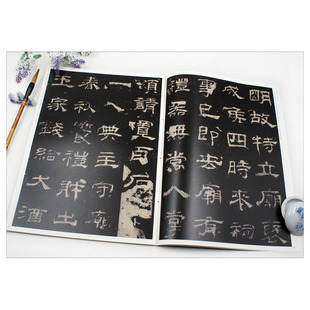 明故特立廟襃
成侯四時来祠
事已即去廟有
禮器無常人掌
領請置百石
一人典主守廟
春秋饗禮財出
王家錢給大酒